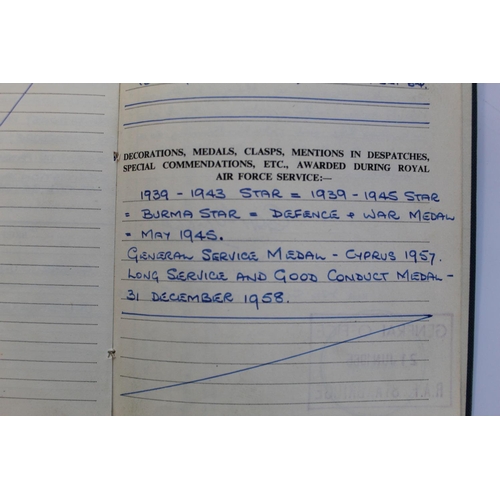 DECORATIONS, MEDALS, CLASPS, MENTIONS IN DESPATCHES,
SPECIAL COMMENDATIONS, ETC., AWARDED DURING ROYAL
AIR FORCE SERVICE:—
1939 - 1943 STAR = 1939 - 1945 STAR
= BURMA STAR = DEFENCE + WAR MEDAL
= MAY 1945.
GENERAL SERVICE MEDAL - CYPRUS 1957.
LONG SERVICE AND GOOD CONDUCT MEDAL -
31 DECEMBER 1958.
GENERAL OFFICE